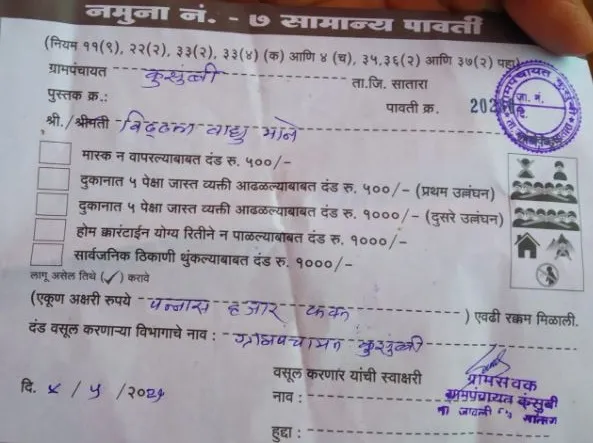 नमुना नं. - ७ सामान्य पावती
(नियम ११(९), २२(२), ३३(२), ३३(४) (क) आणि ४ (च), ३५,३६(२) आणि ३७(२) पहा)
ग्रामपंचायत कुसुंबी ता.जि. सातारा
पुस्तक क्र.: पावती क्र. 202
श्री./श्रीमती विठ्ठल माने
मास्क न वापरल्याबाबत दंड रु. ५००/-
दुकानात ५ पेक्षा जास्त व्यक्ती आढळल्याबाबत दंड रु. ५००/- (प्रथम उल्लंघन)
दुकानात ५ पेक्षा जास्त व्यक्ती आढळल्याबाबत दंड रु. १०००/- (दुसरे उल्लंघन)
होम क्वारंटाईन योग्य रितीने न पाळल्याबाबत दंड रु. १०००/-
सार्वजनिक ठिकाणी थुंकल्याबाबत दंड रु. १०००/-
लागू असेल तिथे (✓) करावे
(एकूण अक्षरी रुपये पन्नास हजार फक्त ) एवढी रक्कम मिळाली.
दंड वसूल करणाऱ्या विभागाचे नाव : ग्रामपंचायत कुसुंबी
वसूल करणार यांची स्वाक्षरी
दि. ४ / ५ /२०२१
नाव :
ग्रामसेवक
ग्रामपंचायत कुसुंबी
हुद्दा :